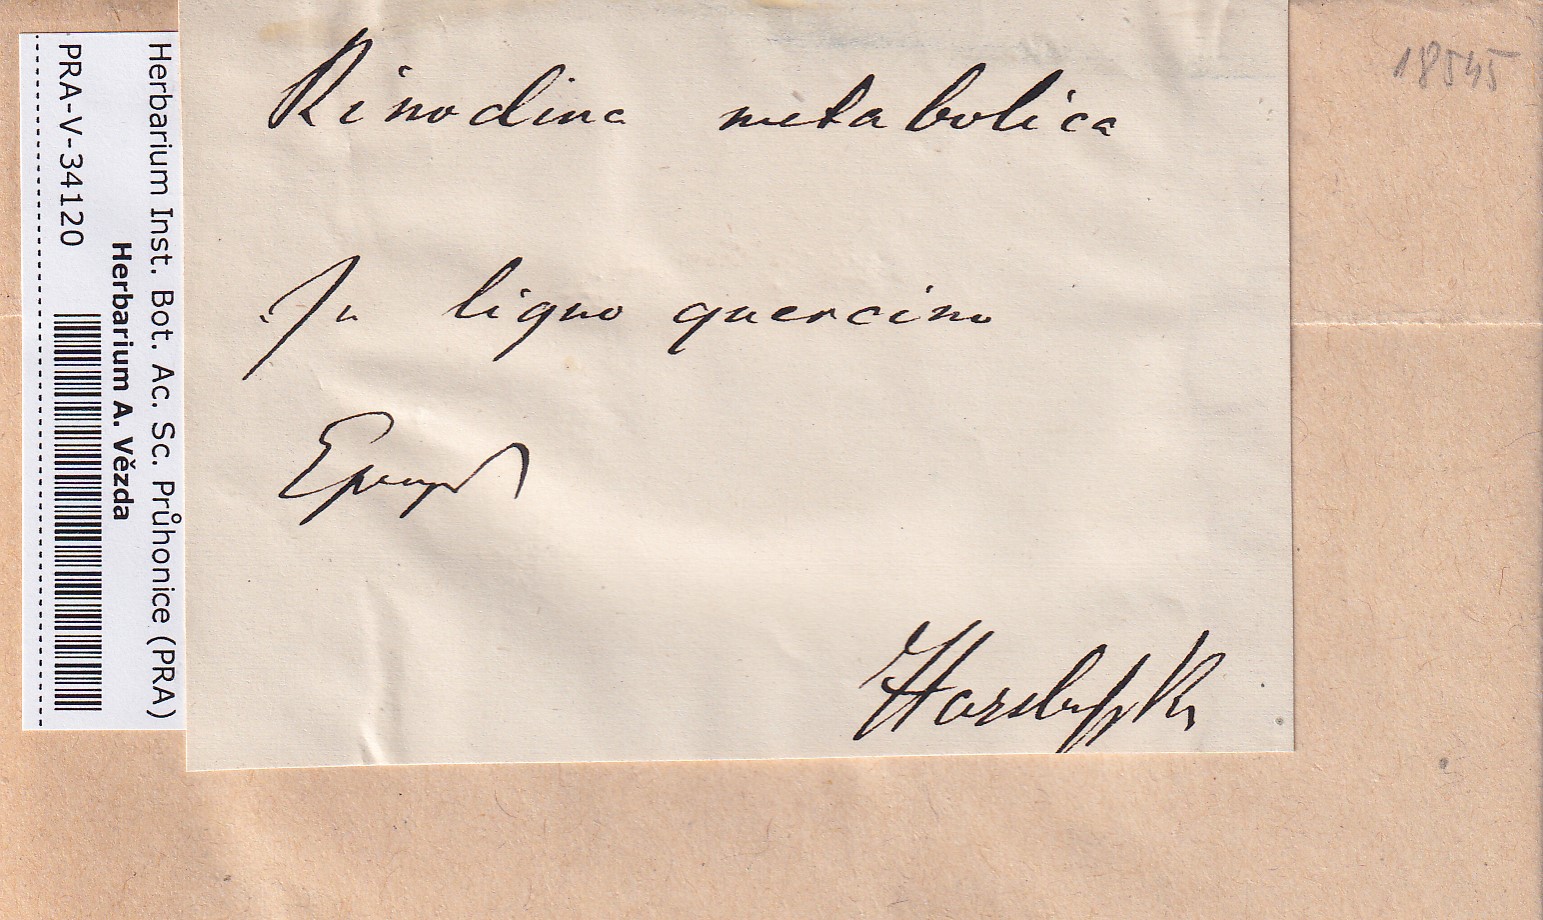 Rinodina metabolica
In ligno quercino
18545
Herbarium Inst. Bot. Ac. Sc. Průhonice (PRA)
Herbarium A. Vězda
PRA-V-34120